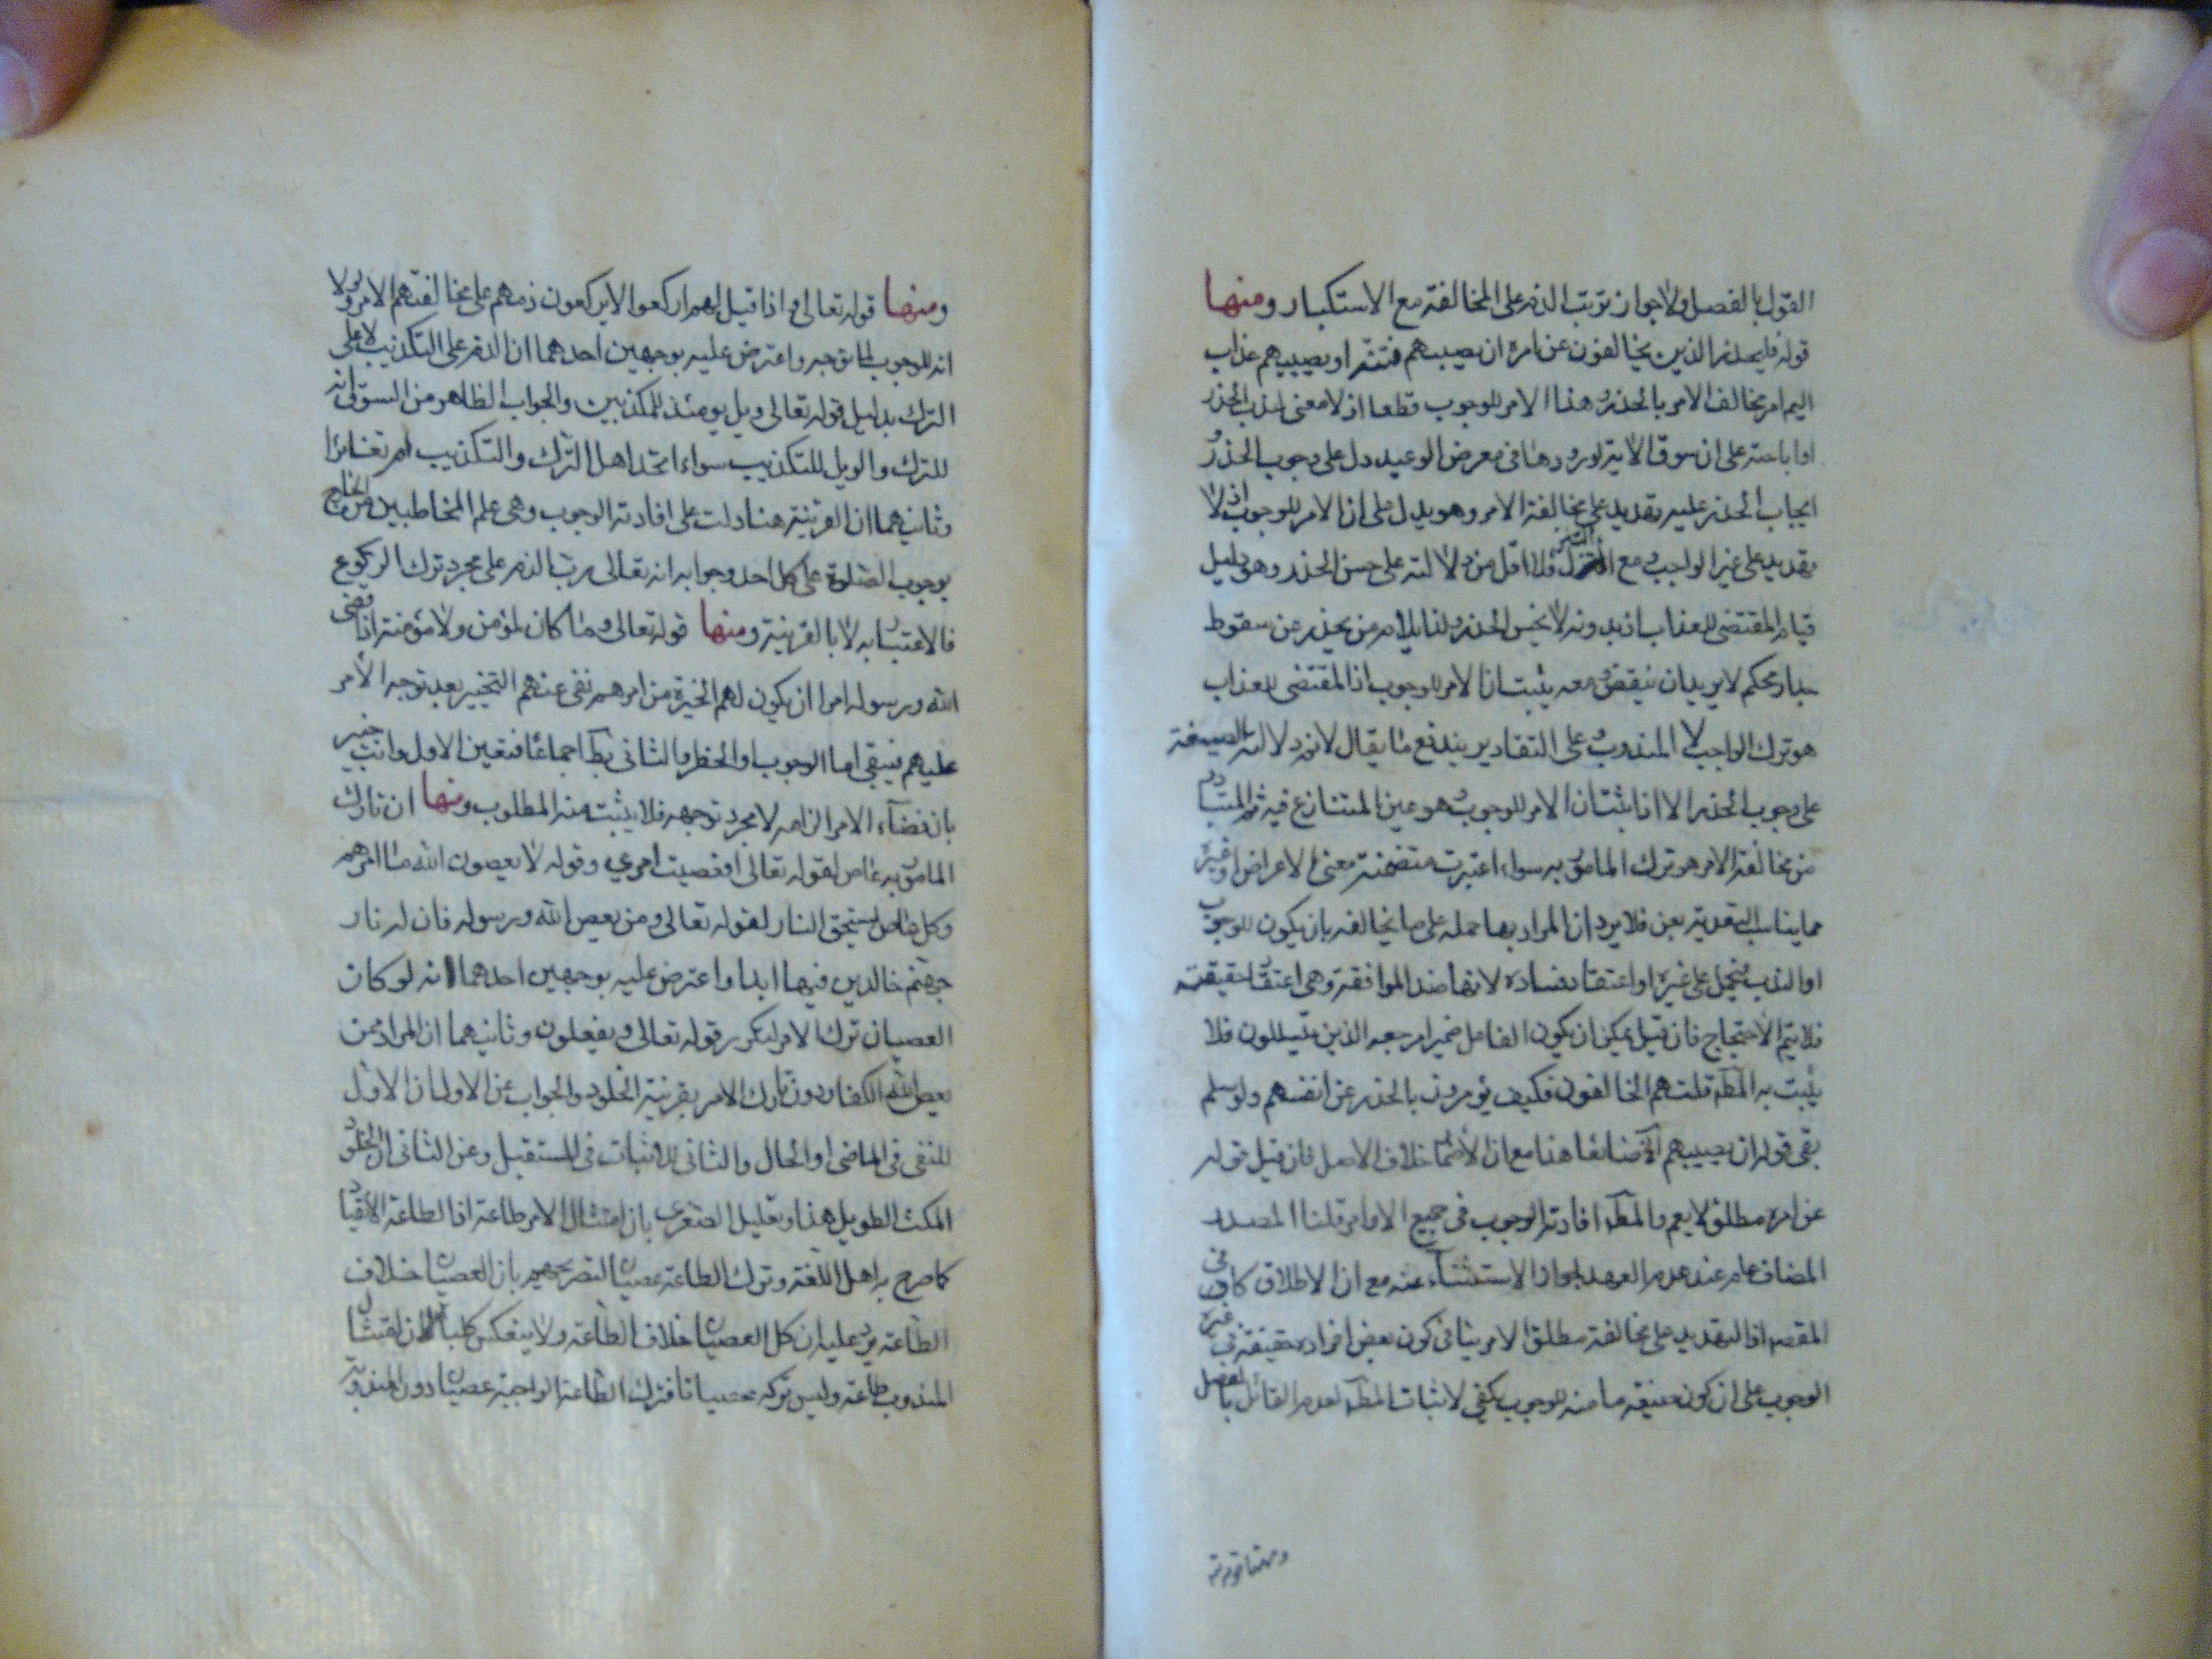 القول بالفصل ولا جواز ترتب الذم على المخالفة مع الاستكبار ومنها
قوله فليحذر الذين يخالفون عن امره ان يصيبهم فتنة او يصيبهم عذاب
اليم امر مخالف الامر بالحذر وهذا الامر للوجوب قطعا اذ لا معنى لندب الحذر
او اباحته على ان سوق الاية لورودها فى معرض الوعيد دل على وجوب الحذر
ايجاب الحذر عليه تهديد على مخالفة الامر وهو يدل على ان الامر للوجوب اذ لا
تهديد على غير الواجب ومع التنزل فلا اقل من دلالته على حسن الحذر وهو دليل
قيام المقتضى للعذاب اذ بدونه لا يحسن الحذر ولذا يلام من يحذر عن سقوط
جدار محكم لا يريد ان ينقض ومعه يثبت ان الامر للوجوب اذ المقتضى للعذاب
هو ترك الواجب لا المندوب وعلى التقادير يندفع ما يقال لا نم دلالة الصيغة
على وجوب الحذر الا اذا ثبت ان الامر للوجوب وهو عين المتنازع فيه ثم المتبادر
من مخالفة الامر هو ترك المامور به سواء اعتبرت متضمنة معنى الاعراض او غيره
مما يناسب التعدية بعن فلا يرد ان المراد بها حمله على ما يخالفه بان يكون للوجوب
او الندب فيحمل على غيره او اعتقاد فساده لانها ضد الموافقة وهى اعتقاد حقيقته
فلا يتم الاحتجاج فان قيل يمكن ان يكون الفاعل ضمير امرجعه الذين يتسللون فلا
يثبت به المط قلت هم المخالفون فكيف يؤمرون بالحذر عن انفسهم ولو سلم
بقى قوله ان يصيبهم الخ ضائعا هنا مع ان الاضمار خلاف الاصل فان قيل قوله
عن امره مطلق لا يعم والمط افادته الوجوب فى جميع الاوامر قلنا المصدر
المضاف عام عند عدم العهد لجواز الاستثناء عنه مع ان الاطلاق كاف فى
المقصود اذ التهديد على مخالفة مطلق الامر ينافى كون بعض افراده حقيقة فى غير
الوجوب على ان كون حقيقة ما منه للوجوب يكفى لاثبات المط لعدم القائل بالفصل
ومنها قوله
ومنها قوله تعالى واذا قيل لهم اركعوا لا يركعون ذمهم على مخالفتهم الامر ولولا
انه للوجوب لما توجه واعترض عليه بوجهين احدهما ان الذم على التكذيب لا على
الترك بدليل قوله تعالى ويل يومئذ للمكذبين والجواب الظاهر من السوق انه
للترك والويل للتكذيب سواء اتحد اهل الترك والتكذيب ام تغايرا
وثانيهما ان القرينة هنا دلت على افادته الوجوب وهى علم المخاطبين من الخارج
بوجوب الصلوة على كل احد وجوابه انه تعالى رتب الذم على مجرد ترك الركوع
فالاعتبار به لا بالقرينة ومنها قوله تعالى وما كان لمؤمن ولا مؤمنة اذا قضى
الله ورسوله امرا ان يكون لهم الخيرة من امرهم نفى عنهم التخيير بعد توجه الامر
عليهم فيبقى اما الوجوب او الحظر والثانى بط اجماعا فتعين الاول وانت خبير
بان قضاء الامر الزامه لا مجرد توجهه فلا يثبت منه المطلوب ومنها ان تارك
المامور به عاص لقوله تعالى افعصيت امرى وقوله لا يعصون الله ما امرهم
وكل عاص يستحق النار لقوله تعالى ومن يعص الله ورسوله فان له نار
جهنم خالدين فيها ابدا واعترض عليه بوجهين احدهما انه لو كان
العصيان ترك الامر لتكرر قوله تعالى ويفعلون وثانيهما ان المراد ممن
يعص الله الكفار دون تارك الامر بقرينة الخلود والجواب عن الاول ان الاول
للنفى فى الماضى او الحال والثانى للاثبات فى المستقبل وعن الثانى ان الخلود
المكث الطويل هذا وتعليل الصغرى بان امتثال الامر طاعة اذ الطاعة الانقياد
كما صرح به اهل اللغة وترك الطاعة عصيان لتصريحهم بان العصيان خلاف
الطاعة يرد عليه ان كل العصيان خلاف الطاعة ولا ينعكس كليا لان امتثال
المندوب طاعة وليس تركه عصيانا فترك الطاعة الواجبة عصيان دون المندوبة